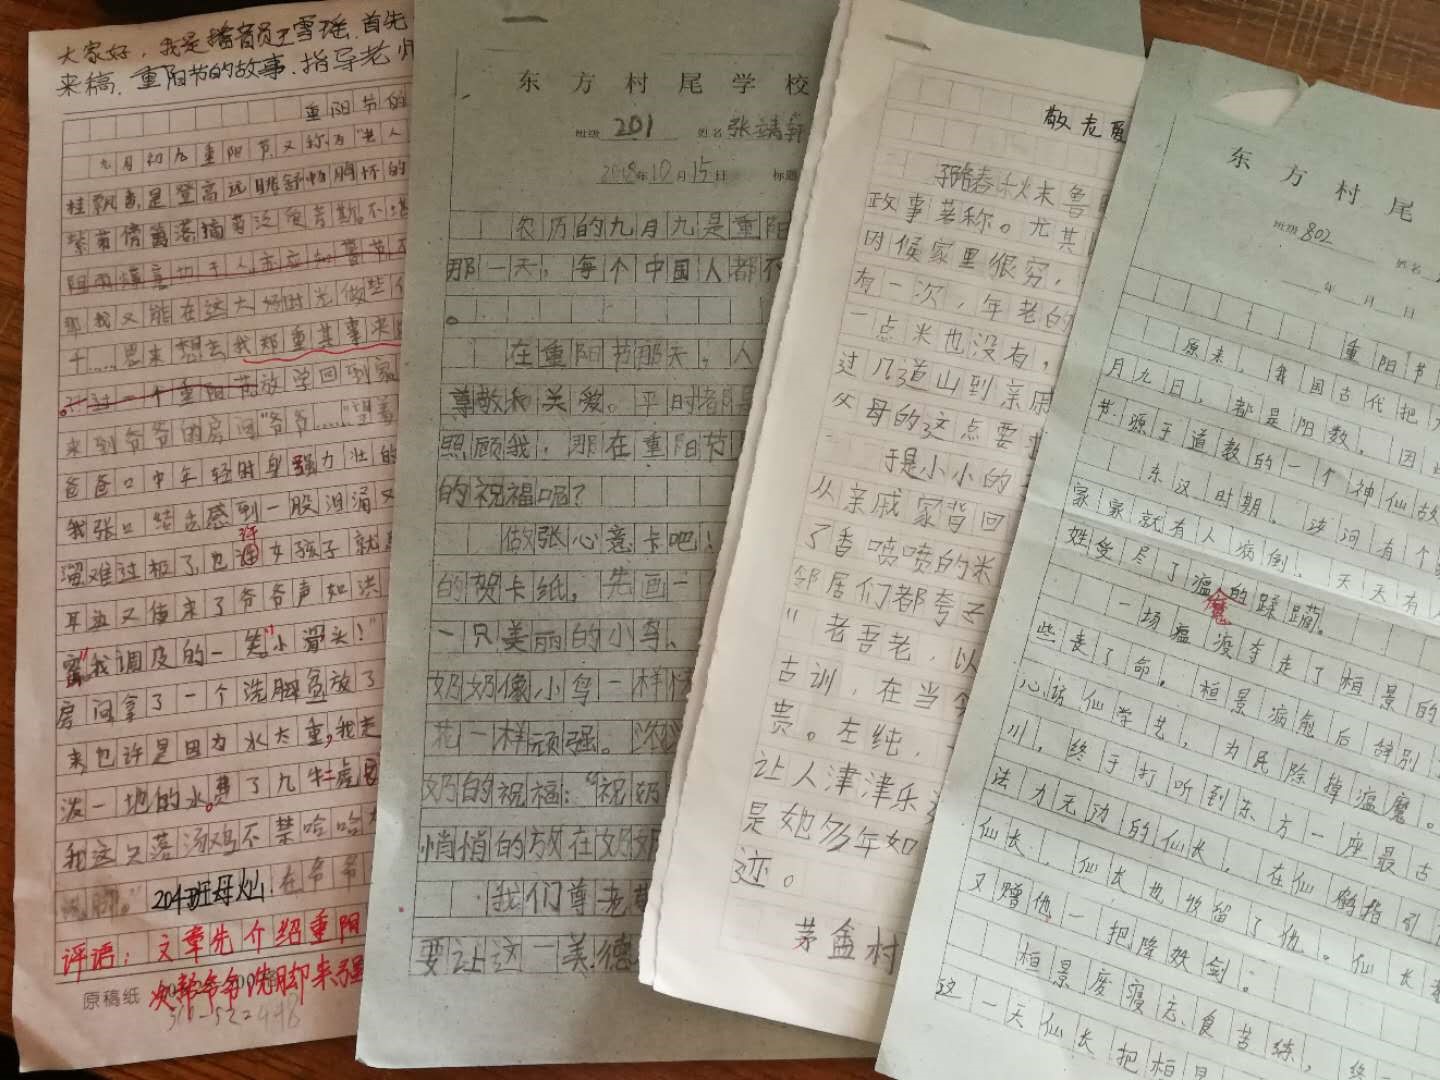 大家好，我是播音员王雪瑶.首先
来稿.重阳节的故事.指导老师
重阳节的
九月初九重阳节又称为"老人
桂飘香是登高远眺舒怡胸怀的
那我又能在这大好时光做些什
干……思来想去我郑重其事来
过一个重阳节放学回到家
来到爷爷的房间"爷爷……"望着
爸爸口中年轻时身强力壮的
我张口结舌感到一股泪涌又
溜难过极了,也许女孩子就
耳边又传来了爷爷声如洪
我调皮的一笑"小滑头!"
房间拿了一个洗脚盆放了
来也许是因为水太重,我走
泼一地的水。费了九牛二虎
我这只落汤鸡不禁哈哈
204班母灿
在爷爷
评语：文章先介绍重阳
次帮爷爷洗脚来
原稿纸
东方村尾学校
班级 201 姓名 张靖
2018年10月15日 标题
农历的九月九是重阳
那一天，每个中国人都不
。
在重阳节那天，人
尊敬和关爱。平时都是
照顾我，那在重阳节
的祝福呢？
做张心意卡吧！
的贺卡纸，先画一
一只美丽的小鸟、
奶奶像小鸟一样快
花一样顽强。
奶的祝福："祝奶
悄悄的放在奶奶
我们尊老
要让这一美德
敬老
春秋末鲁
政事著称。尤其
时候家里很穷，
有一次，年老的
一点米也没有，
过几道山到亲戚
父母的这点要求
于是小小的
从亲戚家背回
了香喷喷的米
邻居们都夸子
"老吾老，以
古训，在当今
贵。左纯，
让人津津乐道
是她多年如
迹。
茅盒村
东方村尾
班级 802 姓名
年 月 日
重阳节
原来，我国古代把九
月九日，都是阳数，因此
节.源于道教的一个神仙故
东汉时期，汝河有个
家家就有人病倒，天天有
姓受尽了瘟魔的蹂躏。
一场瘟疫夺走了桓景的
些丧了命。桓景病愈后辞别
心访仙学艺，为民除掉瘟魔。
川，终于打听到东方一座最古
法力无边的仙长，在仙鹤指引
仙长，仙长也收留了他。仙长
又赠他一把降妖剑。
桓景废寝忘食苦练，终
这一天仙长把桓景